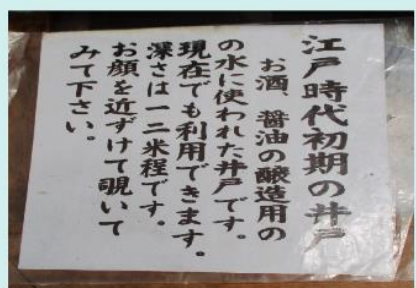 江戸時代初期の井戸
お酒、醤油の醸造用の
の水に使われた井戸です。
現在でも利用できます。
深さは一二米程です。
お顔を近ずけて覗いて
みて下さい。